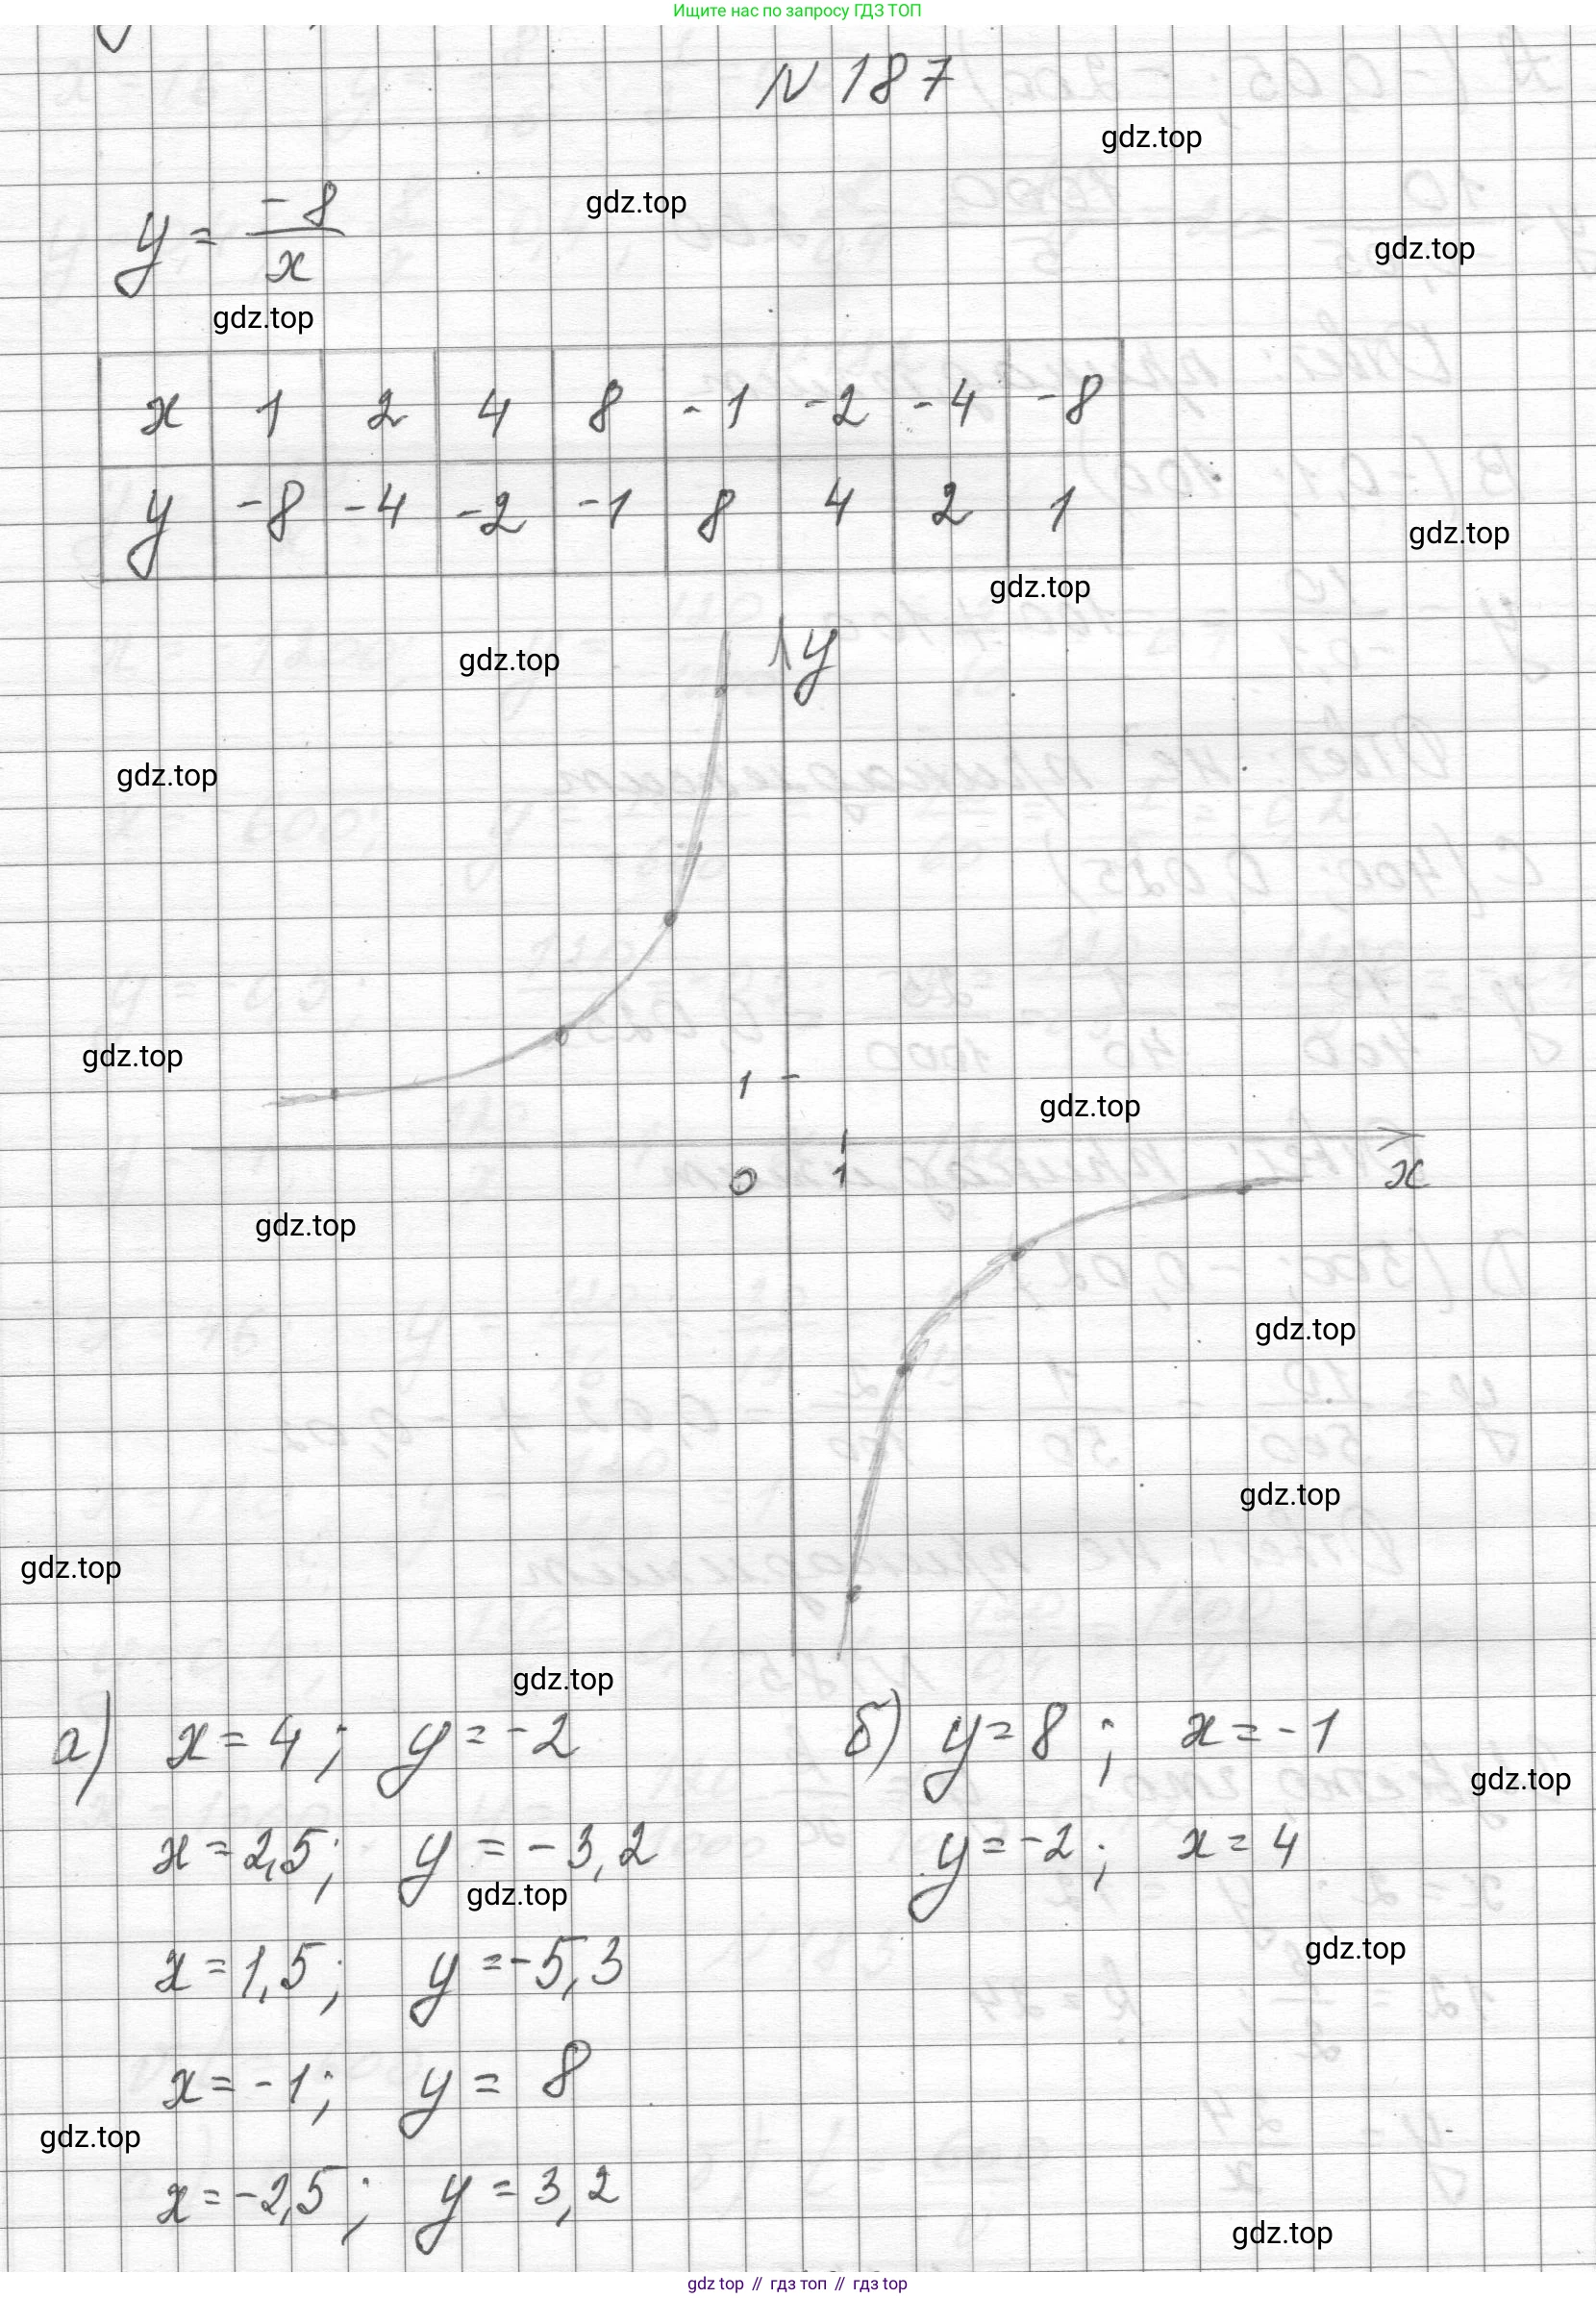 Ищите нас по запросу ГДЗ ТОП
N 187
gdz.top
gdz.top
y = -8/x
gdz.top
gdz.top
x 1 2 4 8 -1 -2 -4 -8
y -8 -4 -2 -1 8 4 2 1
gdz.top
gdz.top
y
gdz.top
gdz.top
gdz.top
1
gdz.top
0 1 x
gdz.top
gdz.top
gdz.top
gdz.top
gdz.top
а) x = 4 ; y = -2
б) y = 8 ; x = -1
gdz.top
x = 2,5 ; y = -3,2
y = -2 ; x = 4
gdz.top
gdz.top
x = 1,5 ; y = -5,3
x = -1 ; y = 8
gdz.top
x = -2,5 ; y = 3,2
gdz.top
gdz top // гдз топ // гдз top